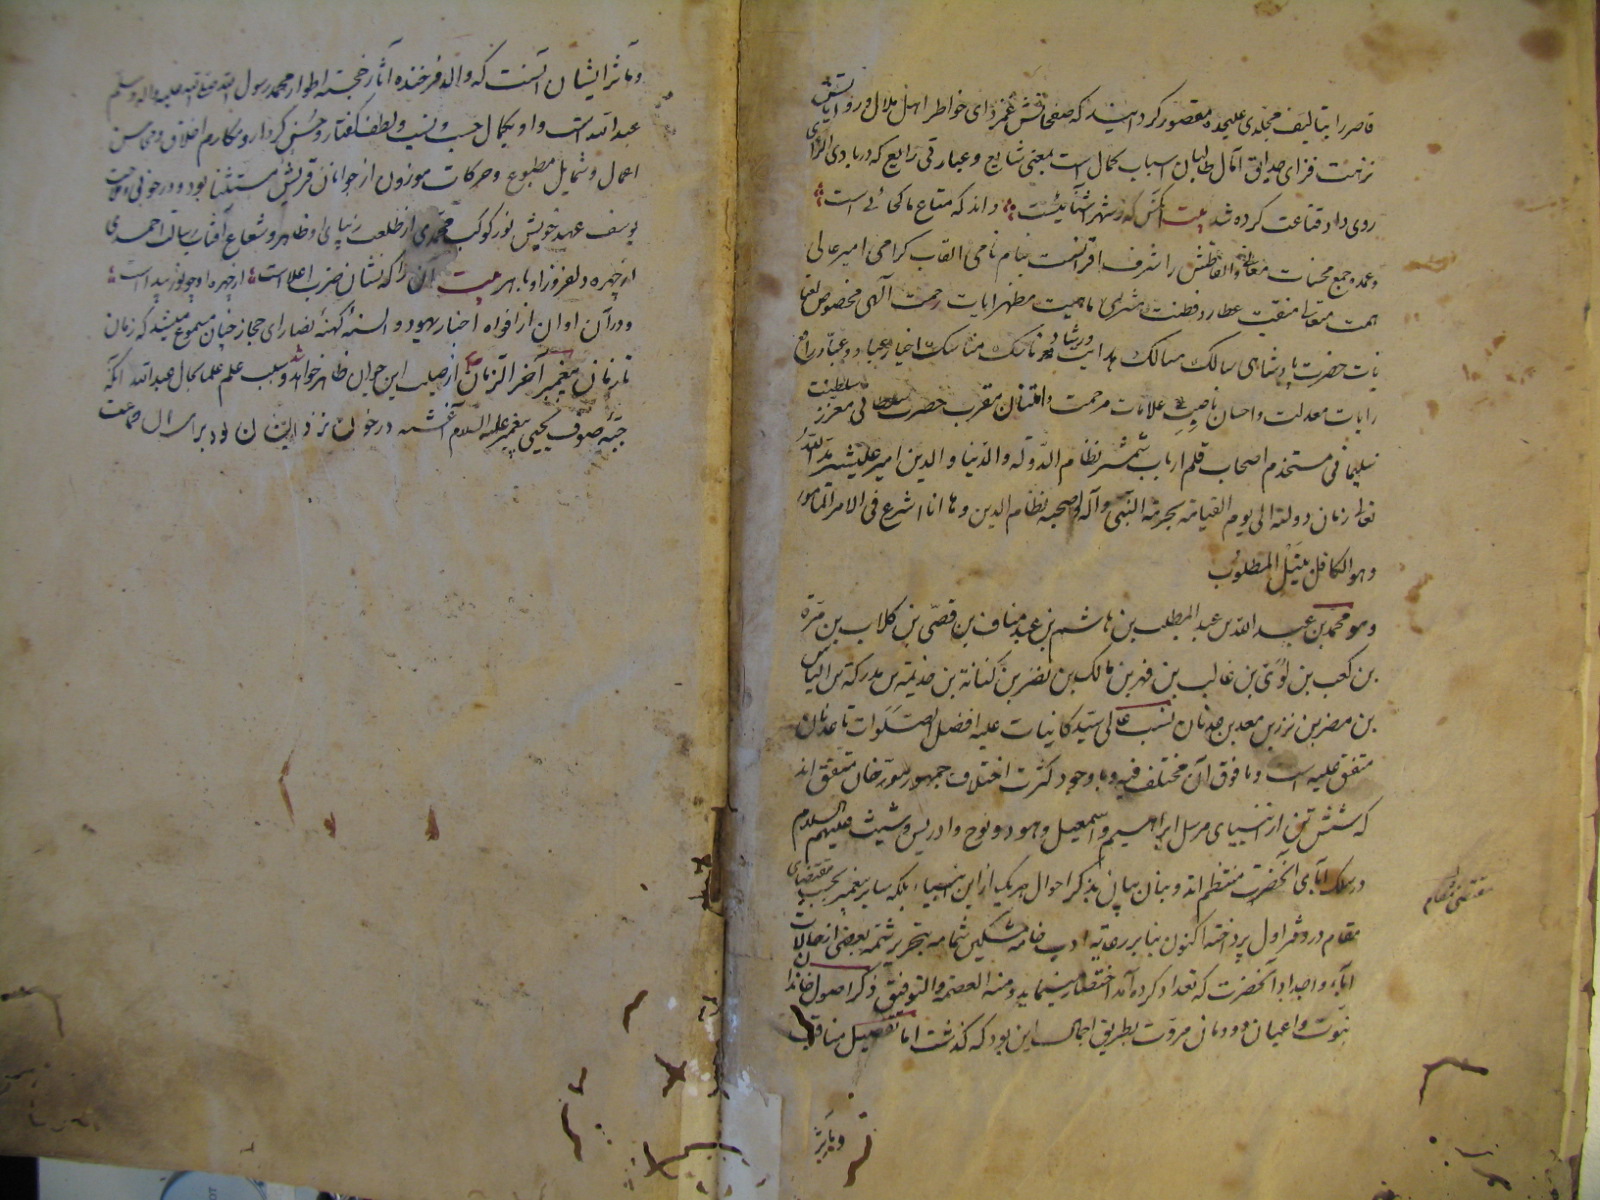 قاصر را بتالیف مجلدی علیحده مقصور کردانید که صفحاتش غمزدای خواطر اهل ملال و روایاتش
نزهت فزای حدایق آمال طالبان اسباب کمال است بمعنی شایع و عبارتی رایع که در بادی الرای
روی داد قناعت کرده شد بیت آنکس که ز شهر آشنائیست داند که متاع ما کجائی است
و عمد و جمع محسنات معانی و الفاظش را شرف اقران بنام نامی القاب کرامی امیر عالی
همت متعالی منقبت عطارد فطنت مشتری ماهیت مظهر ایات رحمت آلهی مخصوص بعنا
یات حضرت پادشاهی سالک مسالک هدایت و رشاد ناسک مناسک اخیار عباد و عباد رافع
رایات معدلت و احسان ناصب علامات مرحمت و امتنان مقرب حضرت سلطنت معزز
سلیمانی مستخدم اصحاب قلم ارباب شمشیر نظام الدوله و الدنیا و الدین امیر علیشیر مد الله
تعالی زمان دولته الی یوم القیامة بحرمة النبی و آله و صحبه نظام الدین و ها انا اشرع فی الامر المامور
و هو الکافل بنیل المطلوب
و هو محمد بن عبد الله بن عبد المطلب بن هاشم بن عبد مناف بن قصی بن کلاب بن مرة
بن کعب بن لوی بن غالب بن فهر بن مالک بن نضر بن کنانة بن خذیمة بن مدرکة بن الیاس
بن مضر بن نزار بن معد بن عدنان نسب عالی سید کاینات علیه افضل الصلوات تا عدنان
متفق علیه است و ما فوق آن مختلف فیه و با وجود کثرت اختلاف جمهور مورخان متفق اند
که شش تن از انبیای مرسل ابراهیم و اسمعیل و هود و نوح و ادریس و شیث علیهم السلام
در سلک آبای آنحضرت منتظم اند و بنان بیان بذکر احوال هر یک از این انبیاء بلکه سایر پیغمبر بحسب مقتضای
مقتضی مقام
مقام در دفتر اول پرداخته اکنون بنابر رعایه ادب خامه مشکین شمامه بتحریر شمه بعضی از حالات
آباء و اجداد آنحضرت که تعداد کرده آمد اختصار مینماید و منه العصمة و التوفیق ذکر اصول خاندان
نبوت و اعیان دودمان مروت بطریق اجمال این بود که گذشت اما تفصیل مناقب
و مآثر
و مآثر ایشان آنست که والد فرخنده آثار خجسته اطوار محمد رسول الله صلی الله علیه و اله و سلم
عبد الله است و او بکمال حسب و نسب و لطف گفتار و حسن کردار و مکارم اخلاق و محاسن
اعمال و شمایل مطبوع و حرکات موزون از جوانان قریش مستثنا بود و در خوبی و وجاهت
یوسف عهد خویش نور کوکب محمدی از طلعت زیبای او ظاهر و شعاع آفتاب رسالت احمدی
از چهره دلفروز او باهر بیت آن را که نشان ضرب اعلا است از چهره او چو نور پیداست
و در آن اوان از افواه احبار یهود و السنه کهنه نصارای حجاز چنان مسموع میشد که زمان
تا زمان پیغمبر آخر الزمان از صلب این جوان ظاهر خواهد شد و سبب علم علما بحال عبد الله آنکه
جبه صوف یحیی پیغمبر علیه السلام آغشته در خون نزد ایشان بود